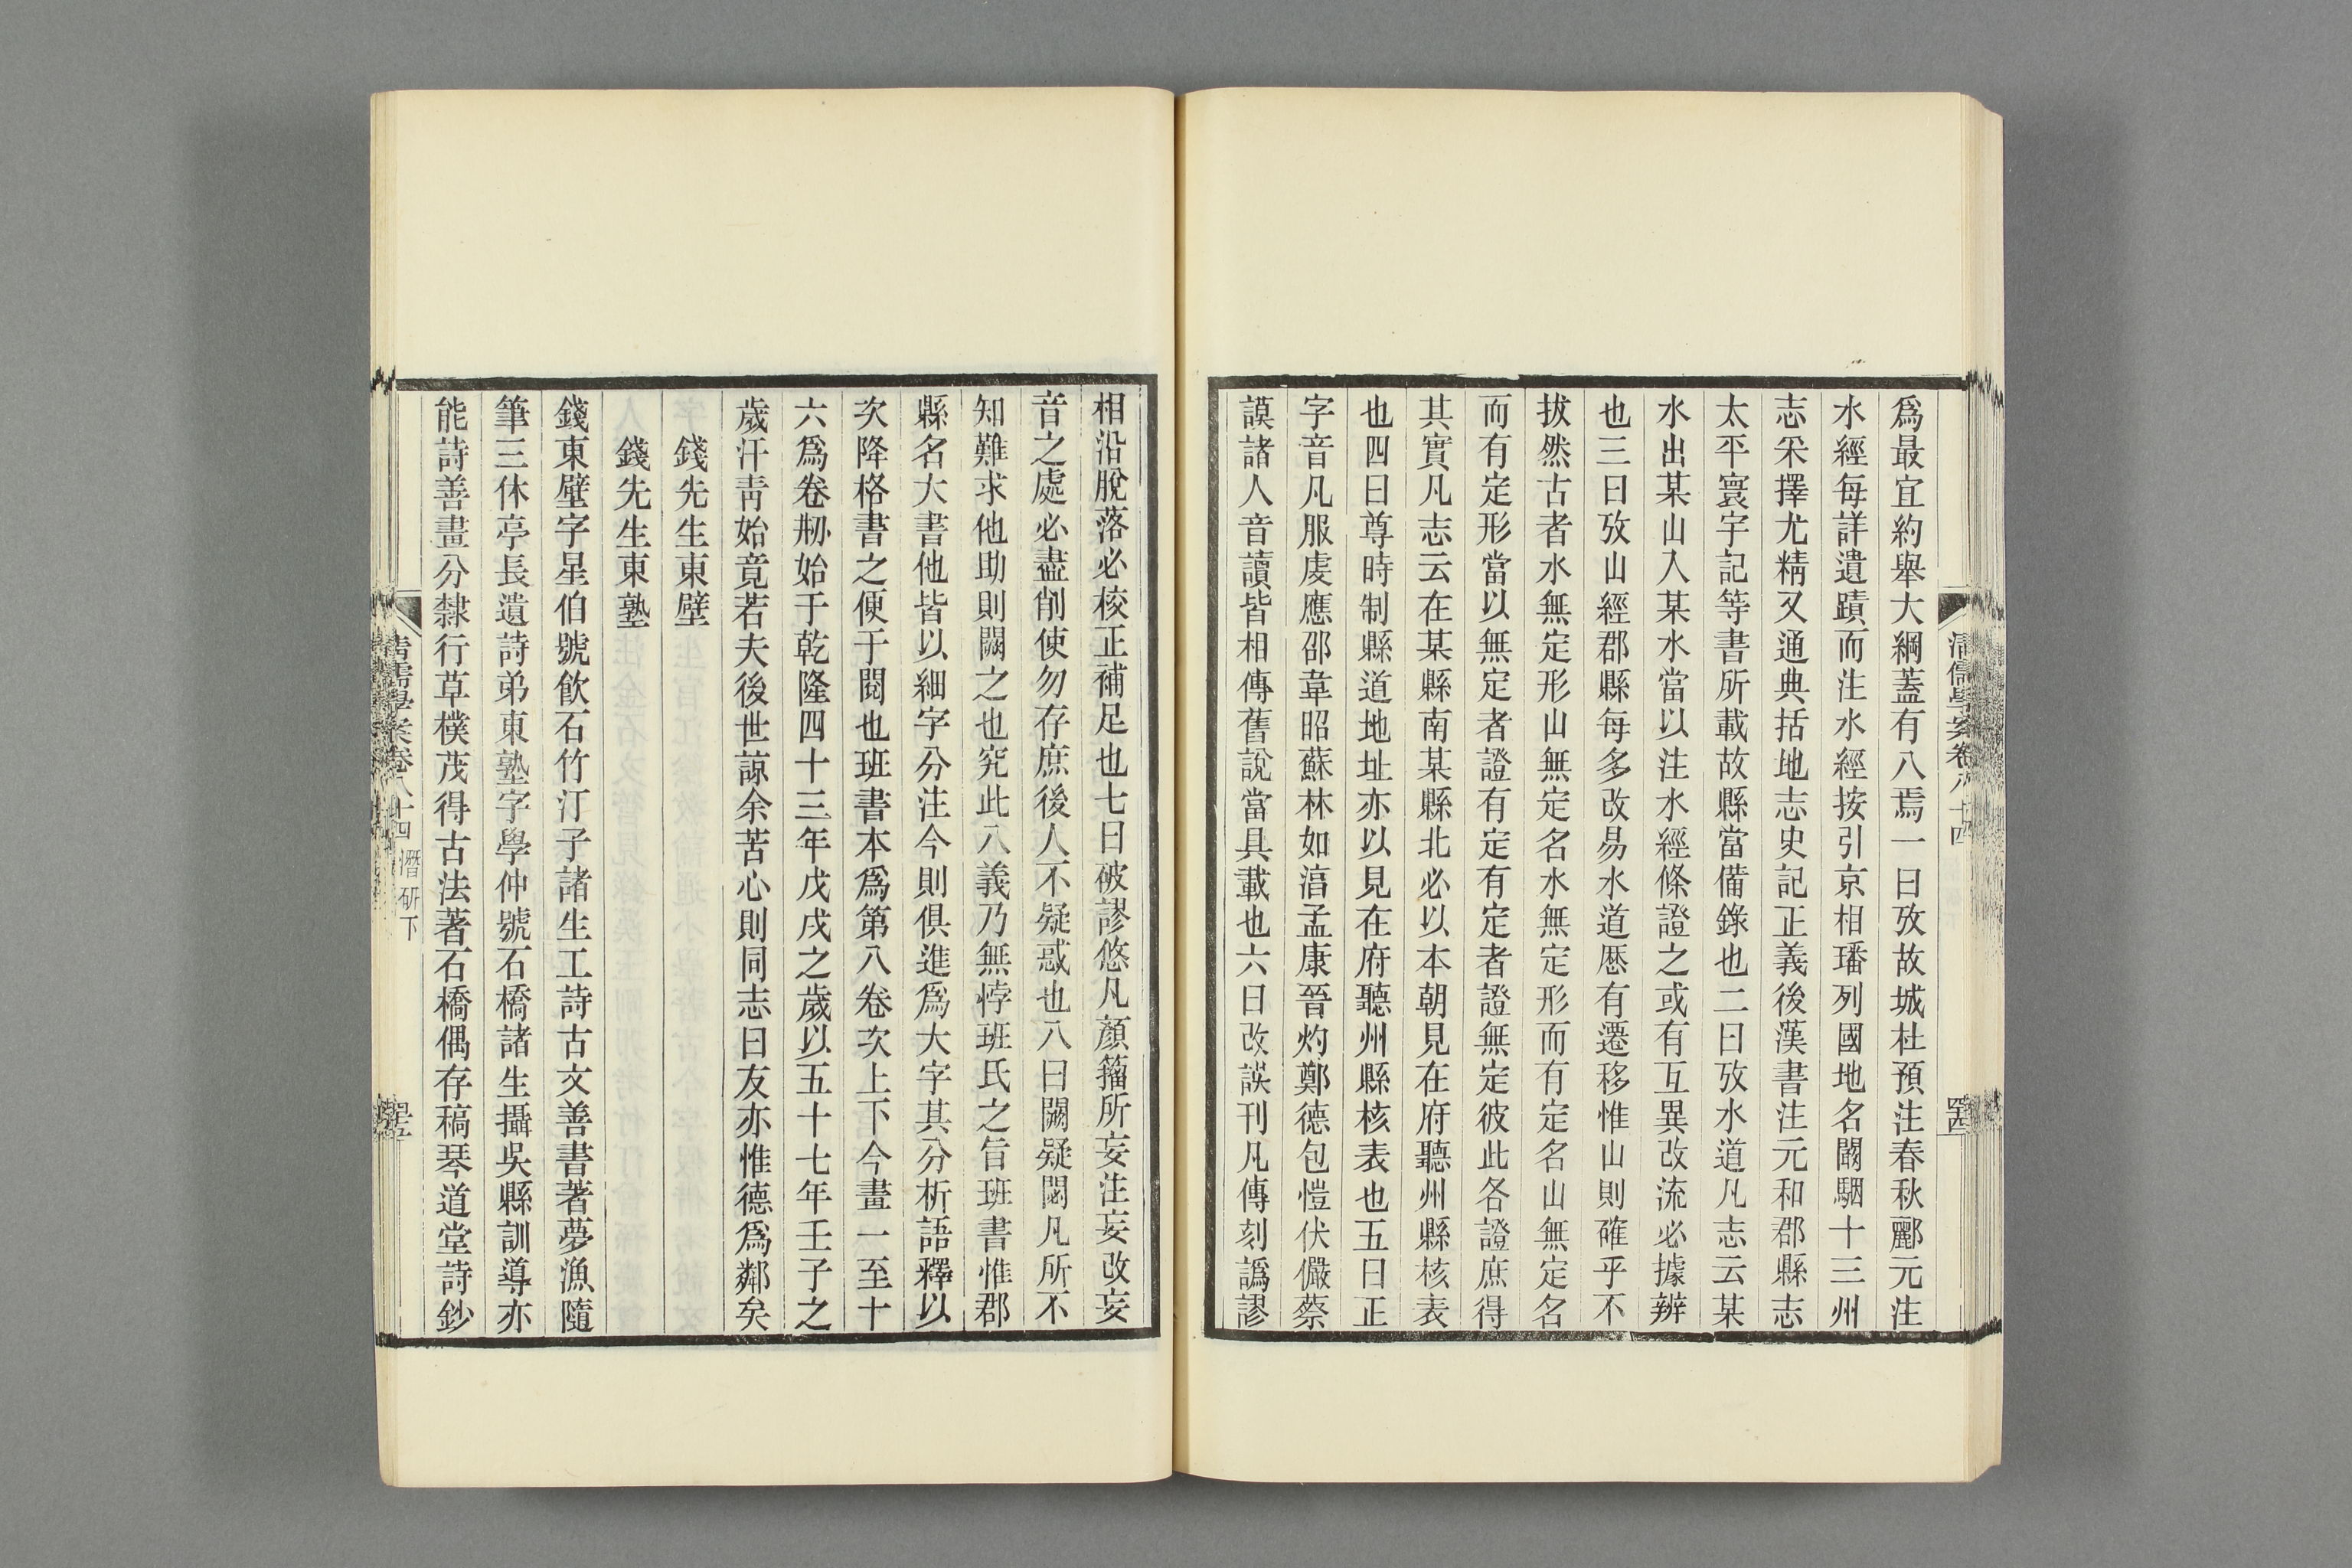 清儒學案卷八十四
爲最宜約舉大綱蓋有八焉一曰攷故城杜預注春秋酈元注
水經每詳遺蹟而注水經按引京相璠列國地名闞駰十三州
志采擇尤精又通典括地志史記正義後漢書注元和郡縣志
太平寰宇記等書所載故縣當備錄也二曰攷水道凡志云某
水出某山入某水當以注水經條證之或有互異改流必據辨
也三曰攷山經郡縣每多改易水道歷有遷移惟山則確乎不
拔然古者水無定形山無定名水無定形而有定名山無定名
而有定形當以無定者證有定有定者證無定彼此各證庶得
其實凡志云在某縣南某縣北必以本朝見在府聽州縣核表
也四曰尊時制縣道地址亦以見在府聽州縣核表也五曰正
字音凡服虔應邵韋昭蘇林如湻孟康晉灼鄭德包愷伏儼蔡
謨諸人音讀皆相傳舊說當具載也六曰改誤刊凡傳刻譌謬
相沿脫落必校正補足也七曰破謬悠凡顏籀所妄注妄改妄
音之處必盡削使勿存庶後人不疑惑也八曰闕疑閡凡所不
知難求他助則闕之也究此八義乃無悖班氏之旨班書惟郡
縣名大書他皆以細字分注今則俱進爲大字其分析語釋以
次降格書之便于閱也班書本爲第八卷次上下今畫一至十
六爲卷刱始于乾隆四十三年戊戌之歲以五十七年壬子之
歲汗靑始竟若夫後世諒余苦心則同志曰友亦惟德爲鄰矣
錢先生東壁
錢先生東塾
錢東壁字星伯號飮石竹汀子諸生工詩古文善書著夢漁隨
筆三休亭長遺詩弟東塾字學仲號石橋諸生攝吳縣訓導亦
能詩善畫分隸行草樸茂得古法著石橋偶存稿琴道堂詩鈔
清儒學案卷八十四 潛研下